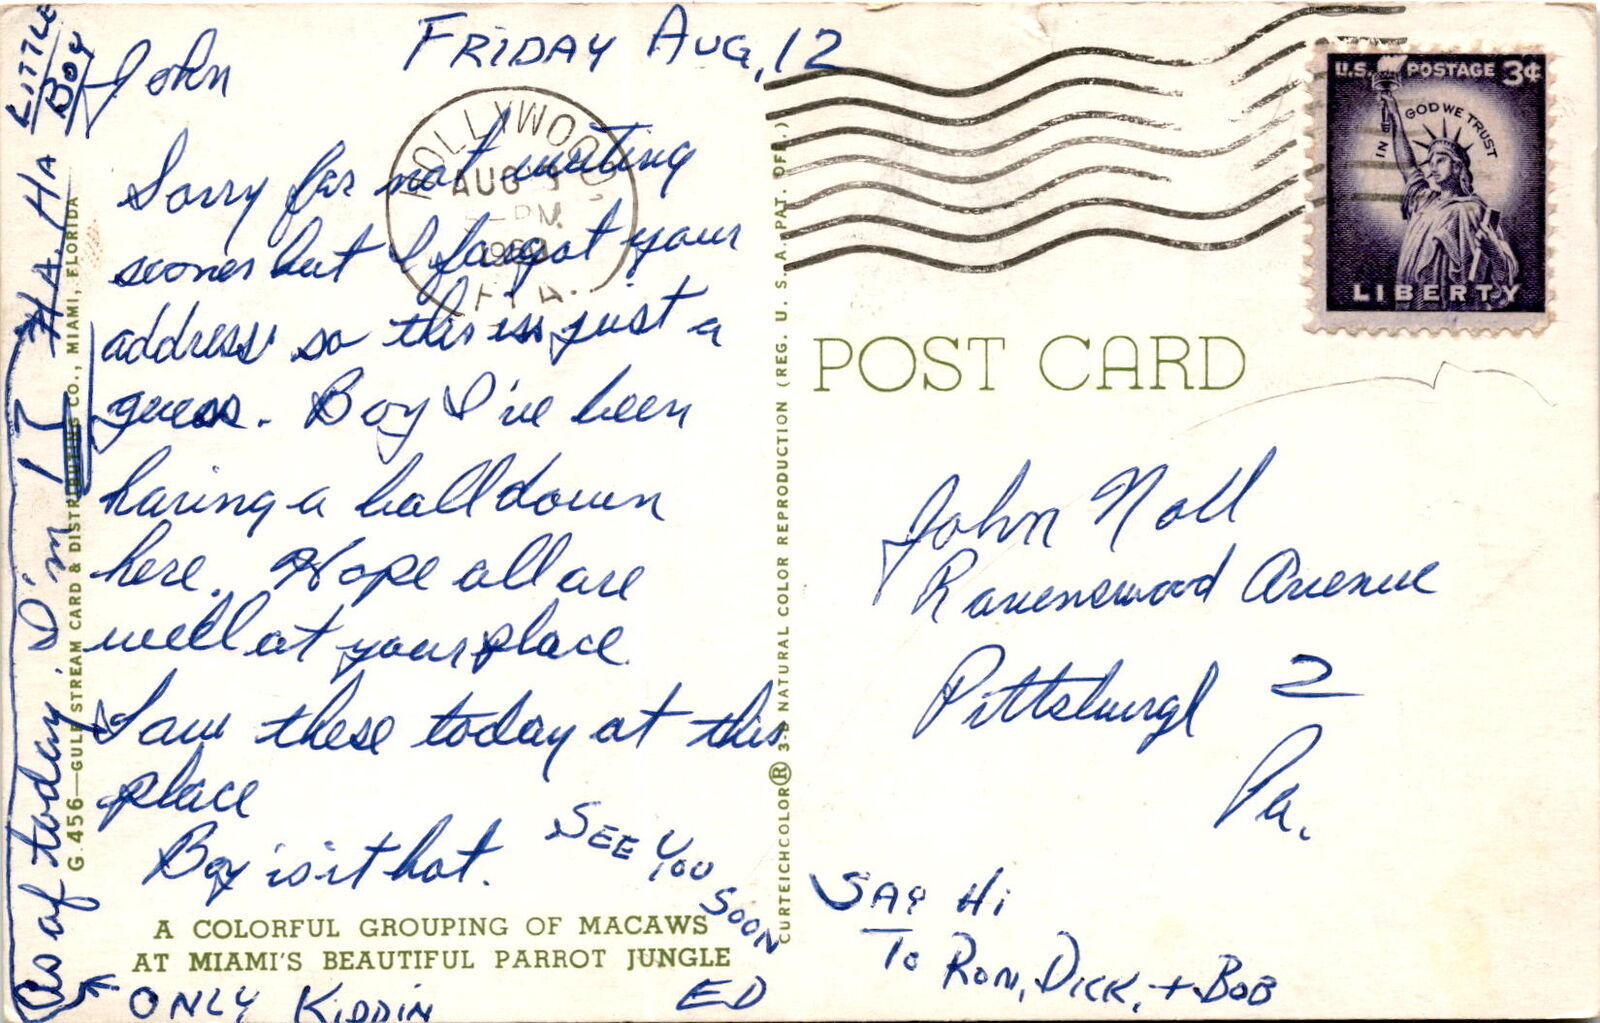 FRIDAY AUG, 12
John
Sorry for not writing
sooner but I forgot your
address so this is just a
guess. Boy I've been
having a ball down
here. Hope all are
well at your place.
I saw these today at this
place
Boy is it hot.
SEE YOU
SOON
ED
As of today. I'm IT HA. HA HA
LITTLE
BOY
ONLY KIDDIN
G.456—GULF STREAM CARD & DISTRIBUTING CO., MIAMI, FLORIDA
A COLORFUL GROUPING OF MACAWS
AT MIAMI'S BEAUTIFUL PARROT JUNGLE
HOLLYWOOD
AUG
PM
FLA.
CURTEICHCOLOR® 3-D NATURAL COLOR REPRODUCTION (REG. U. S. A. PAT. OFF.)
U.S. POSTAGE 3¢
IN GOD WE TRUST
LIBERTY
POST CARD
John Noll
Ravenswood Avenue
Pittsburgh 2
Pa.
SAY HI
TO RON, DICK, + BOB